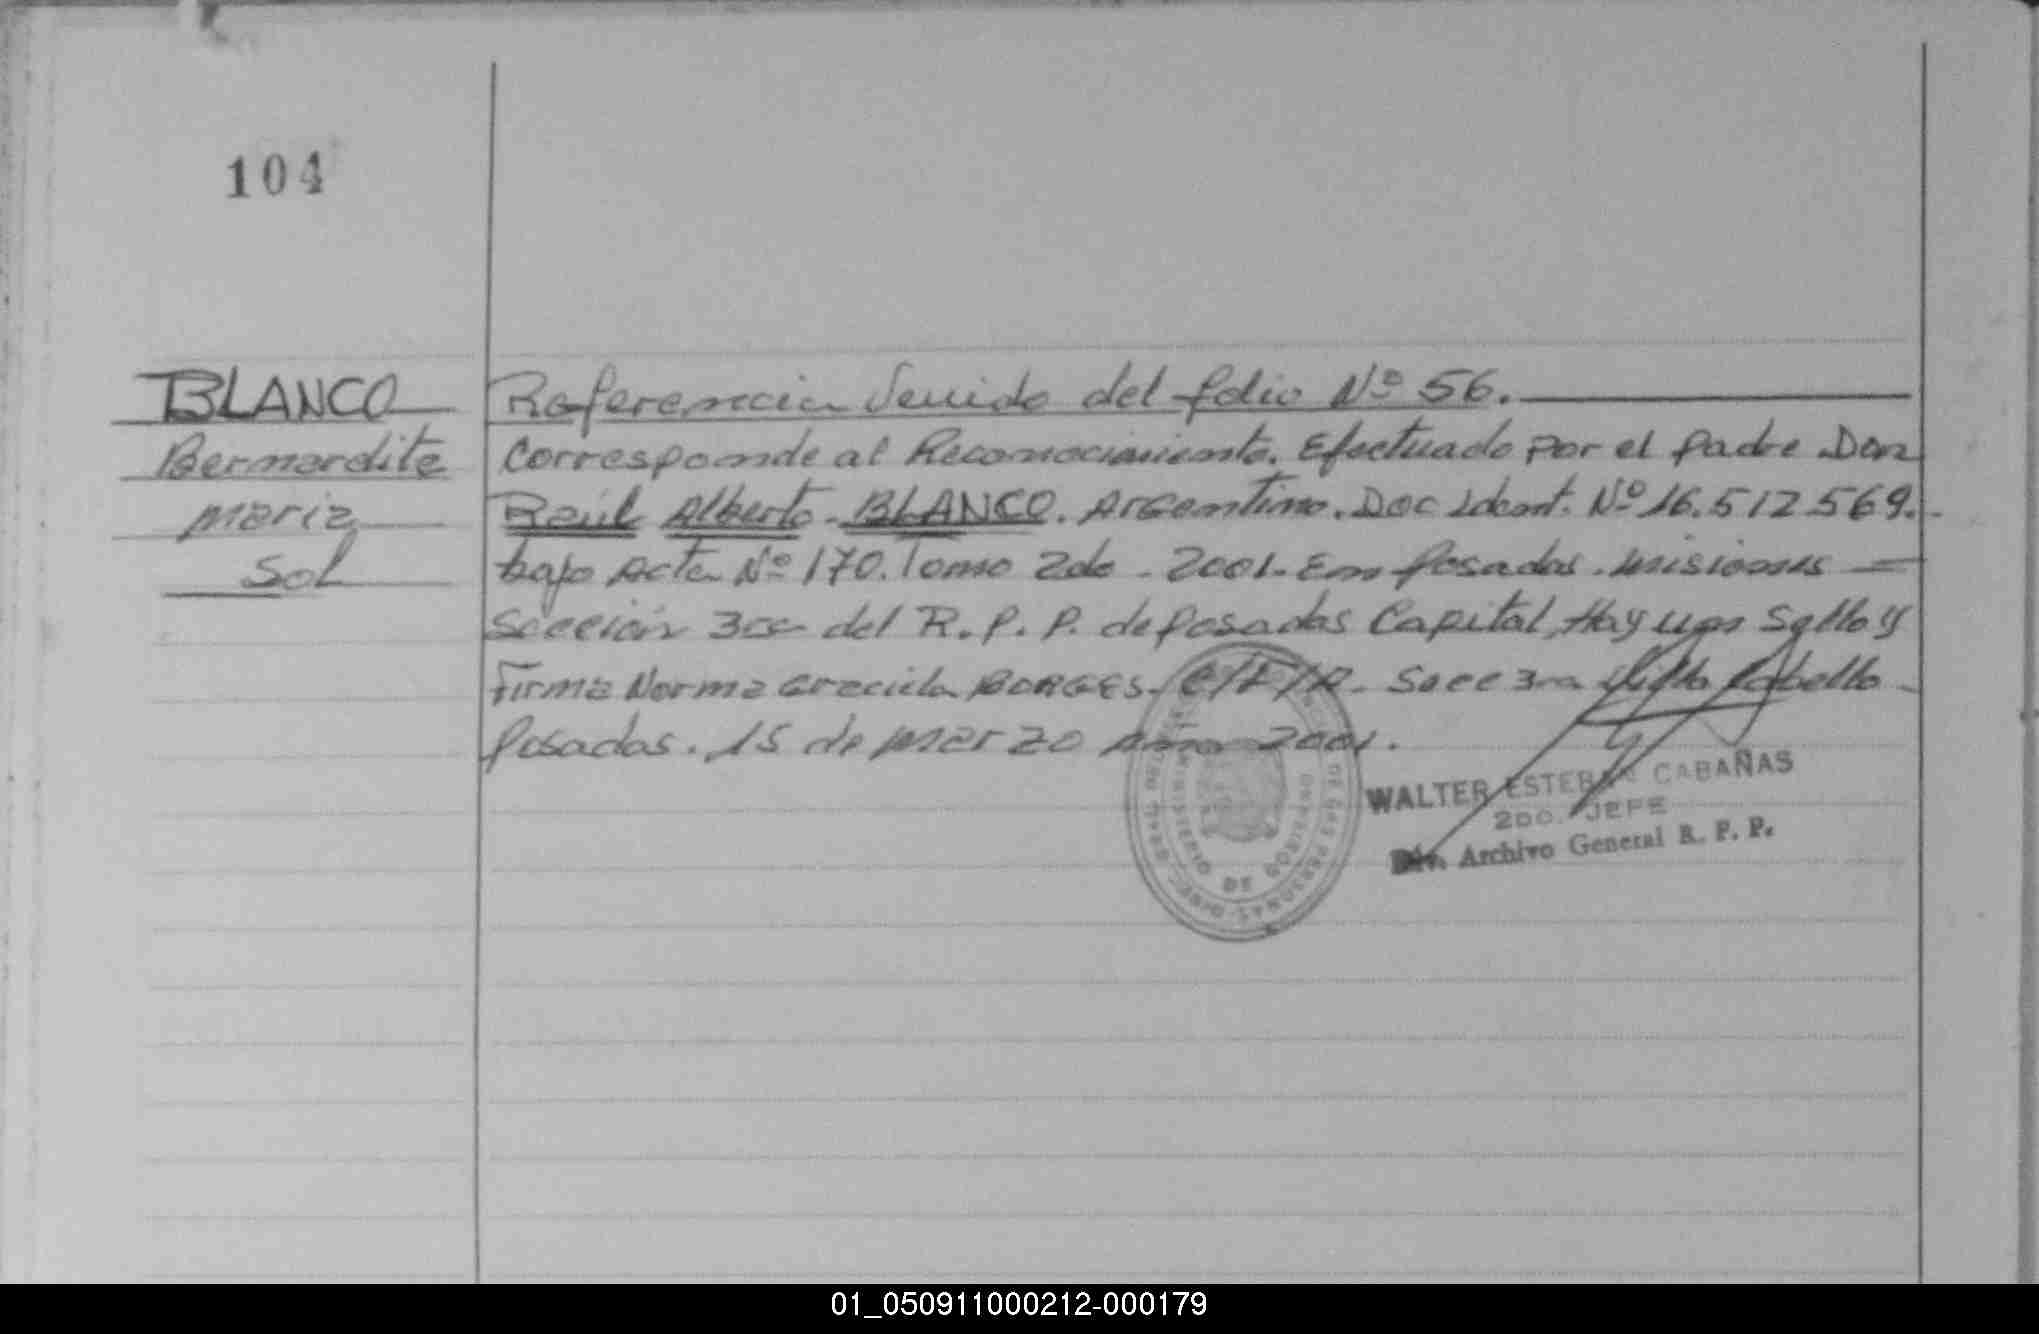 104
BLANCO
Bernardita
maria
Sol
Referencia Venida del folio Nº 56.
Corresponde al Reconocimiento. Efectuado por el padre Don
Raúl Alberto. BLANCO. Argentino. Doc Ident. Nº 16.512569.
bajo Acta Nº 170. Tomo 2do. 2001. En Posadas. misiones =
Sección 3ra del R. P. P. de Posadas Capital, Hay un Sello y
Firma Norma Graciela BORGES. Secc 3ra
Posadas. 15 de marzo Año 2001.
WALTER ESTEBAN CABAÑAS
2DO. JEFE
Div. Archivo General R. P. P.
MINISTERIO DE GOBIERNO
DE LAS PERSONAS
01_050911000212-000179